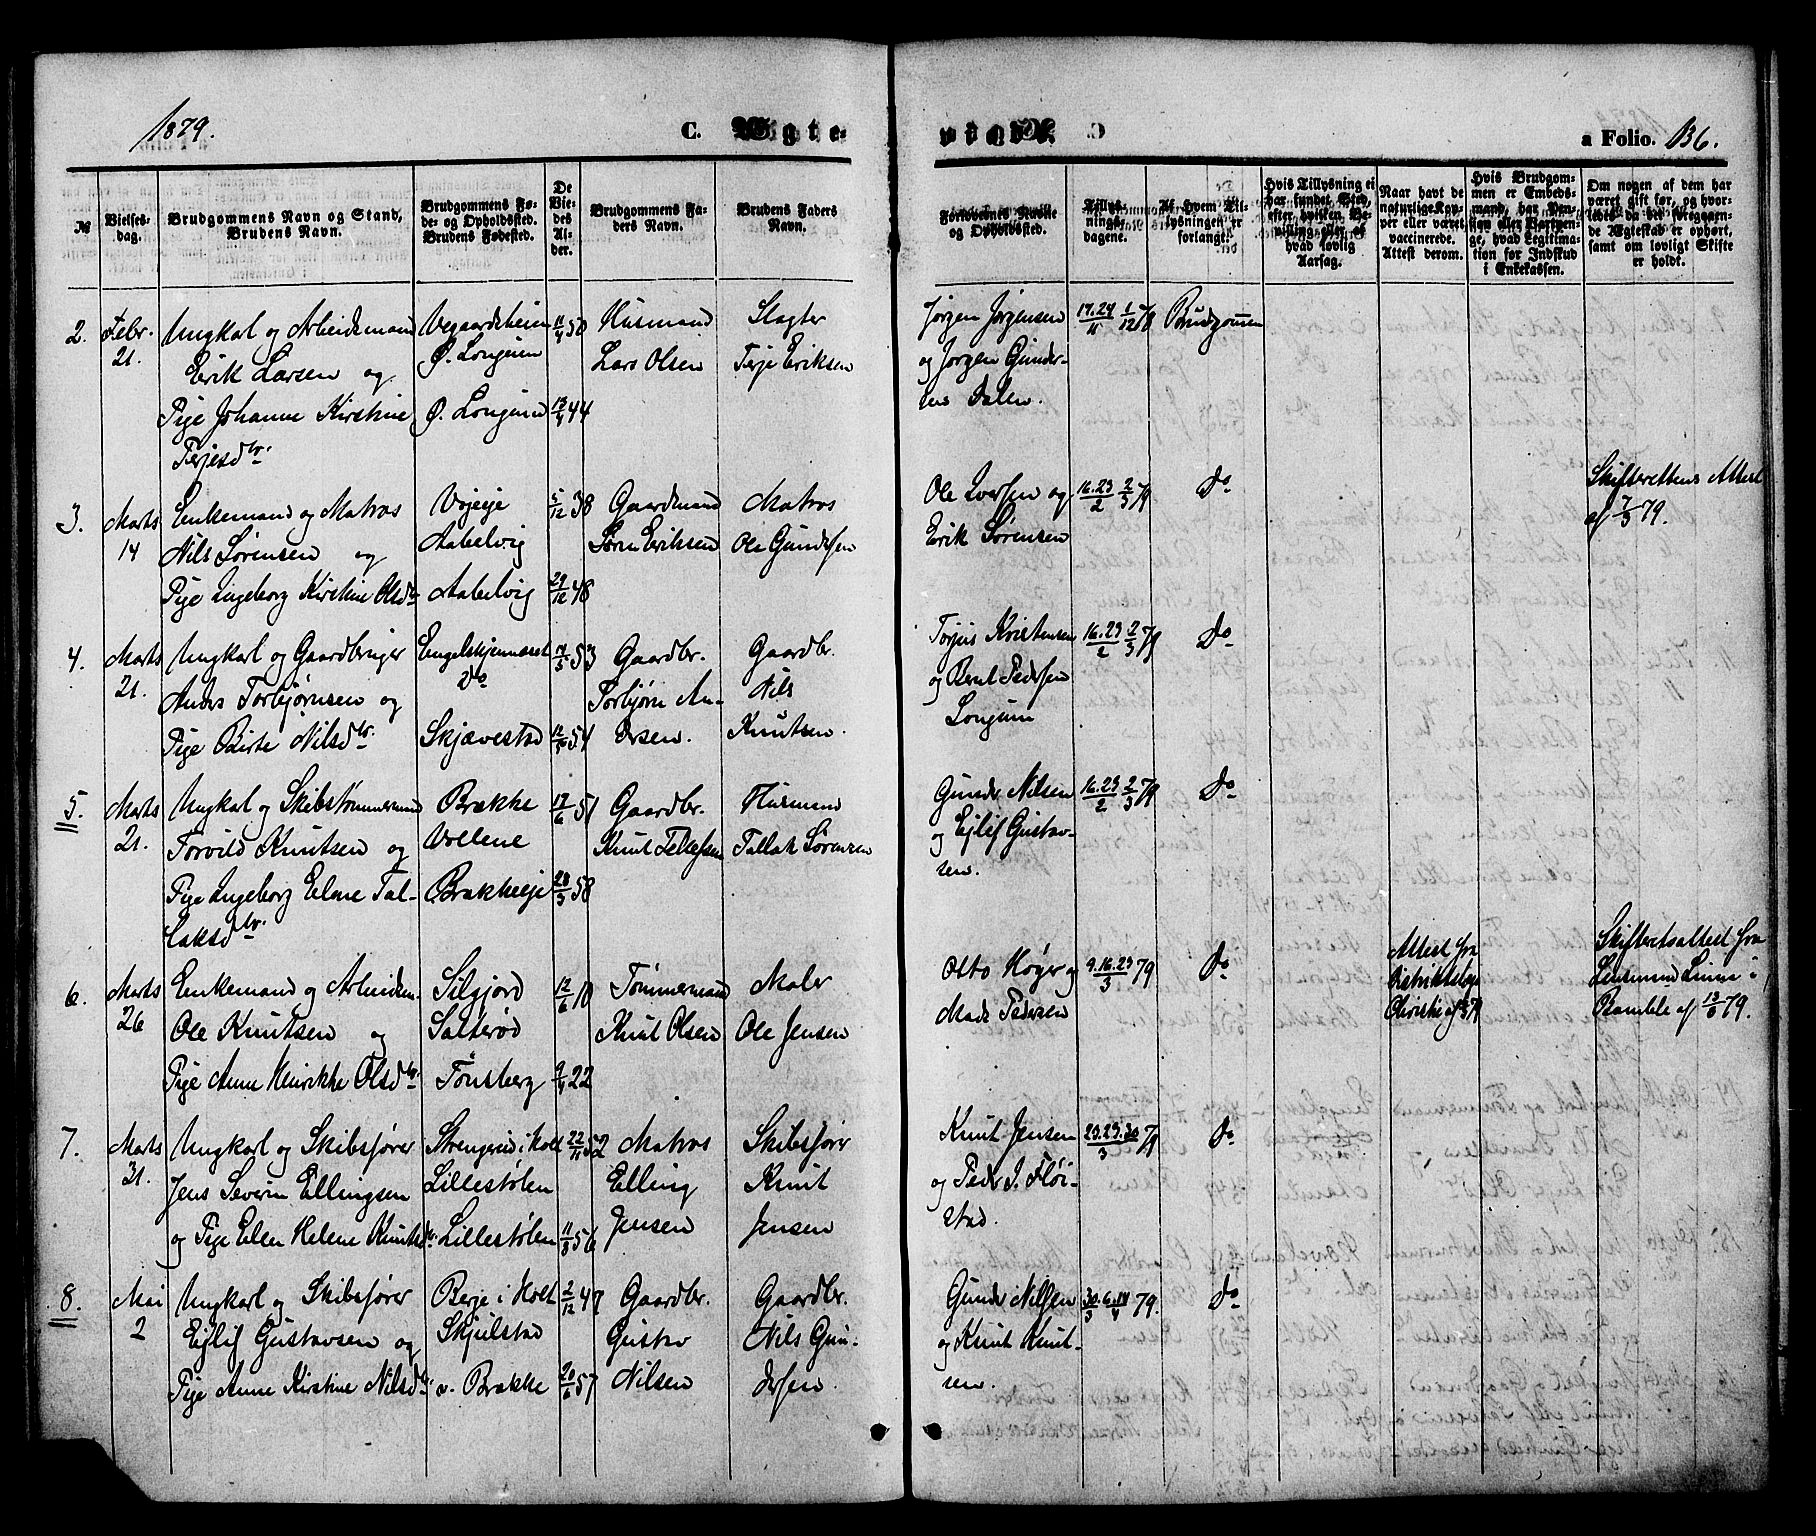 1879.
C. Ægte-
viede.
a Folio. 136.
№
Vielses-
dag.
Brudgommens Navn og Stand,
Brudens Navn.
Brudgommens Fø-
de- og Opholdssted.
Brudens Fødested.
De
Vie-
des
Al-
der.
Brudgommens Fa-
ders Navn.
Brudens Faders
Navn.
Forlovernes Navne
og Opholdssted.
Tillys-
nings-
dagene.
Af Hvem Til-
lysningen er
forlangt.
Hvis Tillysning ei
har fundet Sted,
efter hvilken Be-
villing eller af
hvad lovlig
Aarsag.
Naar havt de
naturlige Kop-
per eller været
vaccinerede.
Attest derom.
Hvis Brudgom-
men er Embeds-
mand, har Pen-
sion eller Vartpen-
ge, hvad Legitima-
tion for Indskud
i Enkekassen.
Om nogen af dem har
været gift før, og hvor-
ledes da det foregaaen-
de Ægteskab er ophørt,
samt om lovligt Skifte
er holdt.
2. Febr. 21. Ungkarl og Arbeidsmand
Erik Larsen og
Pige Johanne Kirstine
Terjesdtr.
Vegaardsheien
Ø. Longum
Ø. Longum
11/4 50
13/4 44
Husmand
Lars Olsen
Slagter
Terje Eriksen
Jørgen Jørgensen
og Jørgen Gunder-
sens Dalen.
17.24/11 1/12 78
Brudgommen
3. Marts 14 Enkemand og Matros
Nils Sørensen og
Pige Ingeborg Kirstine Olsdtr
Vojeie
Aabelvig
Aabelvig
5/12 38
29/12 48
Gaardmand
Søren Eriksen
Matros
Ole Gundersen
Ole Iversen og
Erik Sørensen
16.23/2 2/3 79
do
Skifterettens Attest
af 7/3 79.
4. Marts 21. Ungkarl og Gaardbruger
Anders Torbjørnsen og
Pige Birte Nilsdtr.
Engelskjennaset
do
Skjævestad
53
54
Gaardbr.
Torbjørn An-
dersen.
Gaardbr.
Nils
Knutsen.
Torjus Kristensen
og Bernt Pedersen
Longum
16.23/2 2/3 79
do
5. Marts 21. Ungkarl og Skibstømmermand
Torvild Knutsen og
Pige Ingeborg Elene Tal-
laksdtr.
Brække
Vellene
Brækkeeje
17/6 51
58
Gaardbr.
Knut Tellefsen
Husmand
Tallak Sørensen
Gunder Nilsen
og Ejlif Gustav-
sen.
16.23/2 2/3 79
do
6. Marts 26 Enkemand og Arbeidsm.
Ole Knutsen og
Pige Anne Henrikke Olsdtr.
Silgjord
Salterød
Tønsberg
12/6 10
9/4 22
Tømmermand
Knut Olsen
Maler
Ole Jensen
Otto Høyer og
Mads Pedersen
9.16.23/3 79
do
Attest fra
Distriktslæge
Christie af
Skifteretsattest fra
Lensmand Linn i
Bamble af 13/3 79.
7. Marts 31. Ungkarl og Skibsfører
Jens Severin Ellingsen
og Pige Elen Helene Knutsdtr.
Strengerid i Holt
Lillestølen
Lillestølen
22/11 52
11/8 56
Matros
Elling
Jensen
Skibsfører
Knut
Jensen
Knut Jensen
og Peder J. Fløi-
stad.
23.25.30/3 79
do
8. Mai 2 Ungkarl og Skibsfører
Ejlif Gustavsen og
Pige Anne Kirstine Nilsdtr.
Berje i Holt
Skjulstad
v. Brække
2/12 47
20/6 57
Gaardbr.
Gustav
Nilsen
Gaardbr.
Nils Gun-
dersen.
Gunder Nilsen
og Knut Knut-
sen.
30/3 6.14/4 79.
do